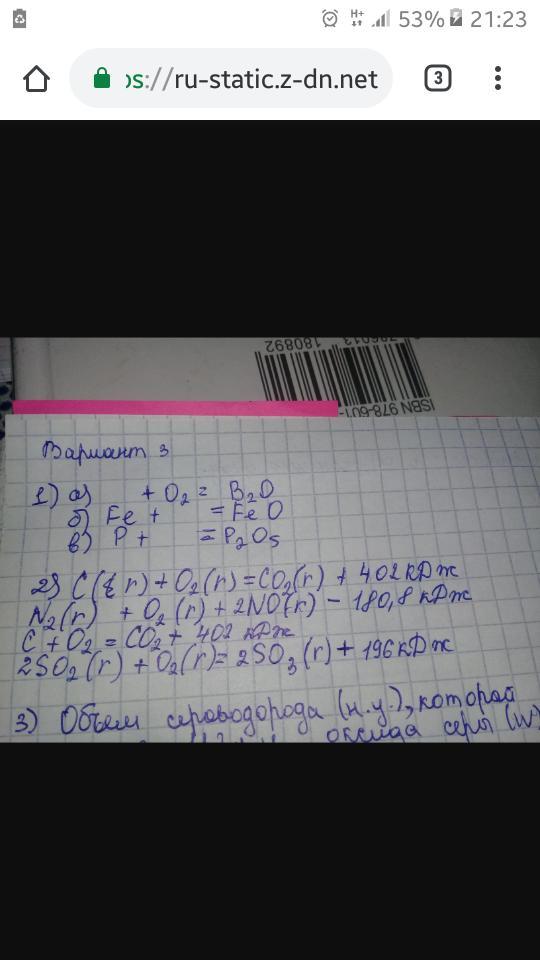 53% 21:23
ps://ru-static.z-dn.net 3
180892
ISBN 978-601-
Вариант 3
1) а) + O₂ = B₂O
б) Fe + = FeO
в) P + = P₂O₅
2) C( г) + O₂(г) = CO₂(г) + 402 кДж
N₂(г) + O₂(г) + 2NO(г) - 180,8 кДж
C + O₂ = CO₂ + 402 кДж
2SO₂(г) + O₂(г) = 2SO₃(г) + 196 кДж
3) Объем сероводорода (н.у.), которой
оксида серы (IV)